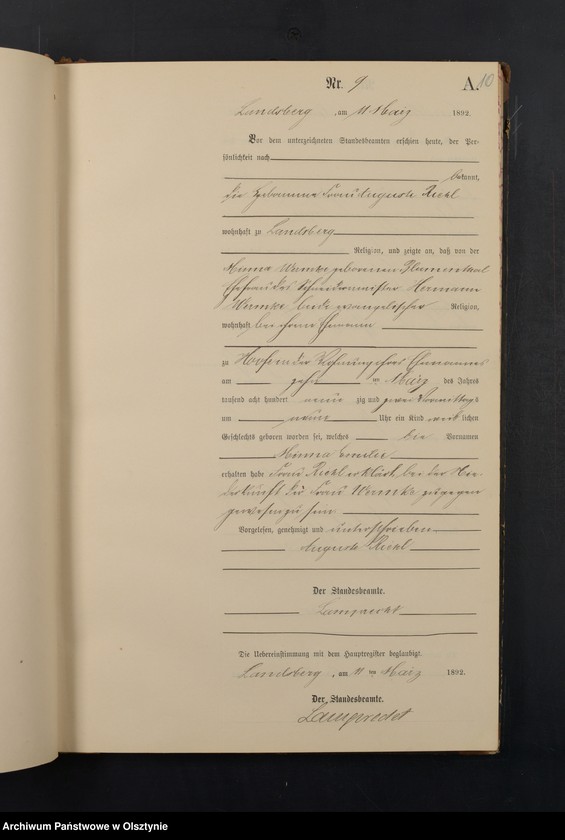 Nr. 9
A. 10
Landsberg, am 11 März 1892.
Vor dem unterzeichneten Standesbeamten erschien heute, der Per-
sönlichkeit nach
bekannt,
die Hebamme Frau Auguste Riehl
wohnhaft zu Landsberg
Religion, und zeigte an, daß von der
Wermke geborenen Blumenthal
Ehefrau des Schneidermeister Hermann
Wermke beide evangelischer Religion,
wohnhaft bei ihrem Ehemann
zu der Wohnung ihres Ehemannes
am zehn ten März des Jahres
tausend acht hundert neun zig und zwei Vormittags
um neun Uhr ein Kind weib lichen
Geschlechts geboren worden sei, welches die Vornamen
Minna
erhalten habe Frau Riehl erklärt, bei der Nie-
derkunft der Frau Wermke zugegen
gewesen zu sein
Vorgelesen, genehmigt und unterschrieben
Auguste Riehl
Der Standesbeamte.
Lamprecht
Die Uebereinstimmung mit dem Hauptregister beglaubigt.
Landsberg, am 11 ten März 1892.
Der Standesbeamte.
Lamprecht
Archiwum Państwowe w Olsztynie